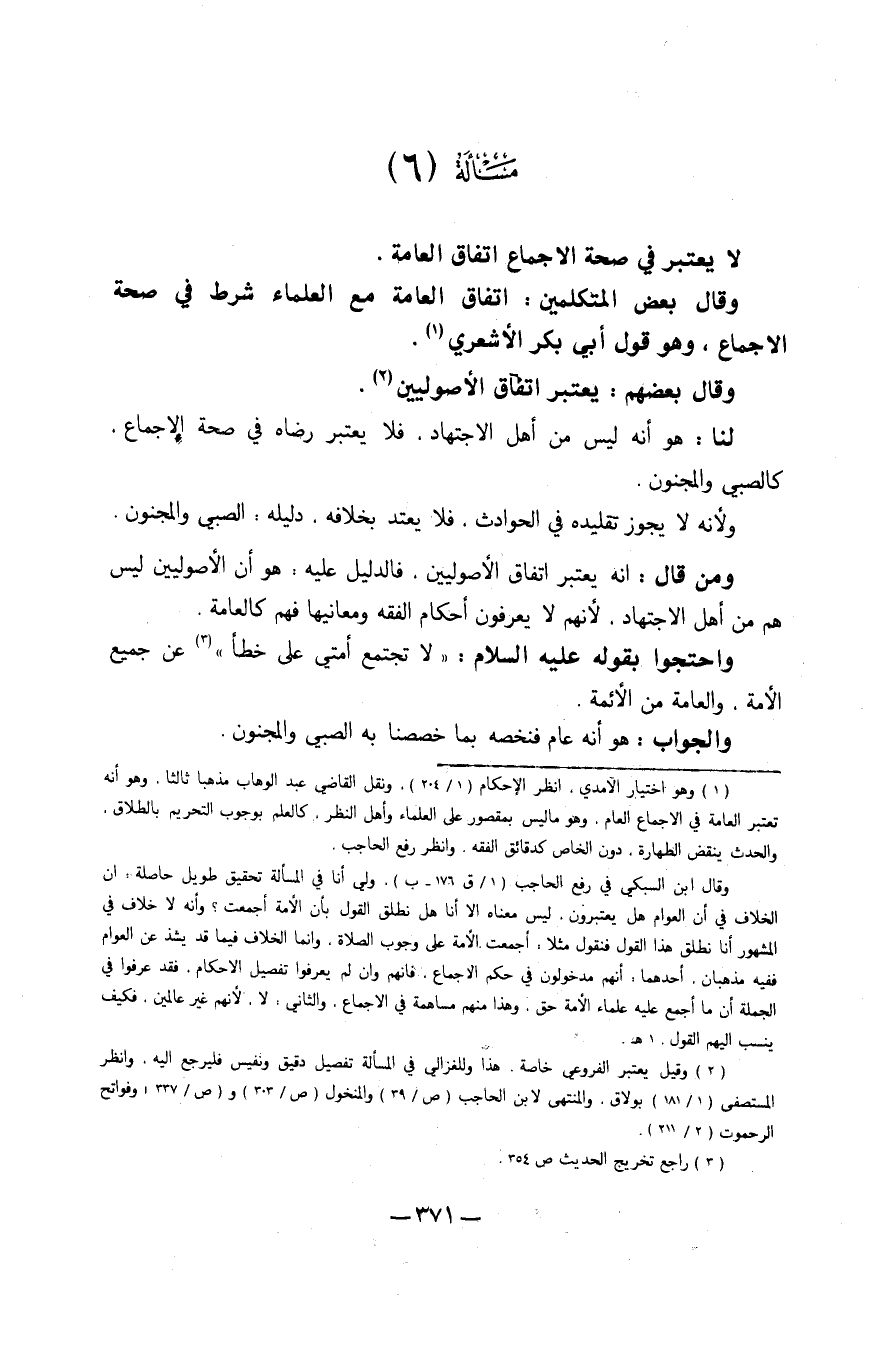 مسألة (٦)
لا يعتبر في صحة الاجماع اتفاق العامة .
وقال بعض المتكلمين : اتفاق العامة مع العلماء شرط في صحة
الاجماع ، وهو قول أبي بكر الأشعري(١) .
وقال بعضهم : يعتبر اتفاق الأصوليين(٢) .
لنا : هو أنه ليس من أهل الاجتهاد . فلا يعتبر رضاه في صحة الإجماع .
كالصبي والمجنون .
ولأنه لا يجوز تقليده في الحوادث . فلا يعتد بخلافه . دليله : الصبي والمجنون .
ومن قال : انه يعتبر اتفاق الأصوليين . فالدليل عليه : هو أن الأصوليين ليس
هم من أهل الاجتهاد . لأنهم لا يعرفون أحكام الفقه ومعانيها فهم كالعامة .
واحتجوا بقوله عليه السلام : « لا تجتمع أمتي على خطأ »(٣) عن جميع
الأمة . والعامة من الأئمة .
والجواب : هو أنه عام فنخصه بما خصصنا به الصبي والمجنون .
( ١ ) وهو اختيار الآمدي . انظر الإحكام ( ١ / ٢٠٤ ) . ونقل القاضي عبد الوهاب مذهبا ثالثا . وهو أنه
تعتبر العامة في الاجماع العام . وهو ماليس بمقصور على العلماء وأهل النظر . كالعلم بوجوب التحريم بالطلاق .
والحدث ينقض الطهارة . دون الخاص كدقائق الفقه . وانظر رفع الحاجب .
وقال ابن السبكي في رفع الحاجب ( ١ / ق ١٧٦ - ب ) . ولي أنا في المسألة تحقيق طويل حاصلة : ان
الخلاف في أن العوام هل يعتبرون . ليس معناه الا أنا هل نطلق القول بأن الأمة أجمعت ؟ وأنه لا خلاف في
المشهور أنا نطلق هذا القول فنقول مثلا : أجمعت الأمة على وجوب الصلاة . وانما الخلاف فيما قد يشذ عن العوام
ففيه مذهبان . أحدهما : أنهم مدخولون في حكم الاجماع . فانهم وان لم يعرفوا تفصيل الاحكام . فقد عرفوا في
الجملة أن ما أجمع عليه علماء الأمة حق . وهذا منهم مساهمة في الاجماع . والثاني : لا . لأنهم غير عالمين . فكيف
ينسب اليهم القول . ا هـ .
( ٢ ) وقيل يعتبر الفروعي خاصة . هذا وللغزالي في المسألة تفصيل دقيق ونفيس فليرجع اليه . وانظر
المستصفى ( ١ / ١٨١ ) بولاق . والمنتهى لابن الحاجب ( ص / ٣٩ ) والمنخول ( ص / ٣٠٣ ) و ( ص / ٣٣٧ ؛ وفواتح
الرحموت ( ٢ / ٢١١ ) .
( ٣ ) راجع تخريج الحديث ص ٣٥٤ .
— ٣٧١ —